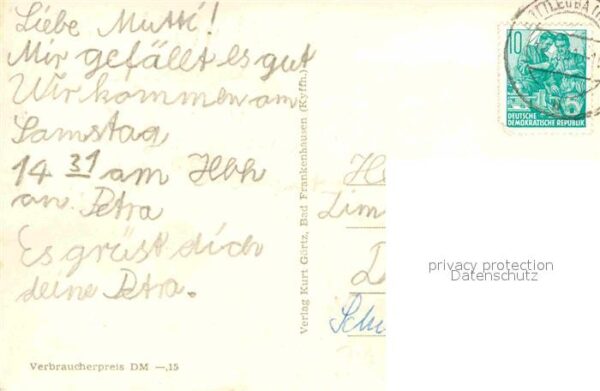 Liebe Mutti!
Mir gefällt es gut
Wir kommen am
Samstag
14 31 am Hbh
an. Petra
Es grüst dich
deine Petra.
Verbraucherpreis DM —,15
Verlag Kurt Görtz, Bad Frankenhausen (Kyffh.)
10
DEUTSCHE
DEMOKRATISCHE REPUBLIK
privacy protection
Datenschutz